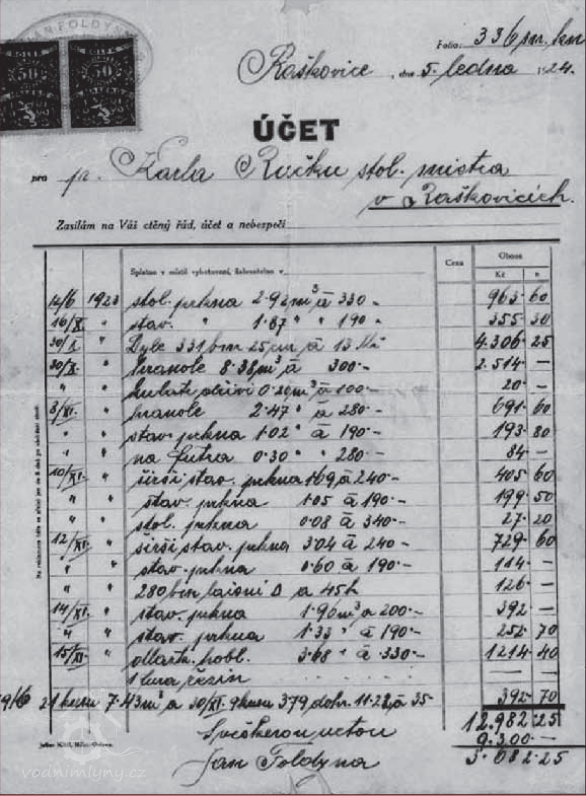 JAN FOLDYNA
50 50
Folio: 336 sm. km
Raškovice, dne 5. ledna 1924.
ÚČET
pro p. Karla Ručku stol. mistra
v Raškovicích.
Zasílám na Váš ctěný řád, účet a nebezpečí
Splatno v místě vyhotovení, žalovatelno v Cena Obnos
Kč h
14/6 1923 stol. prkna 2.92 m³ à 330 - 963 60
16/X. " stav. " 1.87 " " 190 - 355 30
30/X " Dyle 331 bm 25 cm à 13 Kč 4.306 25
30/X. " hranole 8.38 m³ à 300.- 2.514 —
" " 0.20 m³ à 100.- 20 —
3/XI. " hranole 2.47 " a 280.- 691 60
" " stav. prkna 1.02 " à 190.- 193 80
" " na futra 0.30 " " 280.- 84 —
10/XI. " širší stav. prkna 1.69 à 240.- 405 60
" " stav. prkna 1.05 à 190.- 199 50
" " stol. prkna 0.08 à 340.- 27 20
12/XI. " širší stav. prkna 3.04 à 240 - 729 60
" " stav. prkna 0.60 à 190.- 114 —
" " 280 bm laisní a 45 h 126 —
14/XI. " stav. prkna 1.96 m³ a 200.- 392 —
" " stav. prkna 1.33 " à 190.- 252 70
15/XI. " 3.68 " à 330.- 1214 40
1 fůra řezin
19/6 21 kusů 7.43 m³ a 30/XI. 9 kusů 3.79, dohr. 11.22 à 35 392 70
12.982 25
S veškerou úctou 9.300 —
Jan Foldyna 3.682.25
vodnimlyny.cz